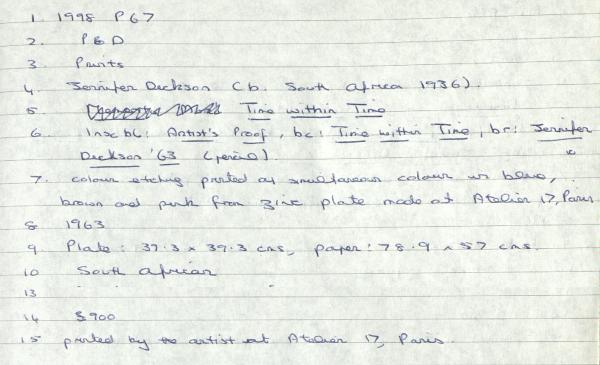 1. 1998 P67
2. P&D
3. Prints
4. Jennifer Dickson (b. South Africa 1936).
5 Time within Time
6. Insc bl: Artist's Proof, bc: Time within Time, br: Jennifer
Dickson '63 (pencil)
7. colour etching printed as simultaneous colour in blue,
brown and pink from zinc plate made at Atelier 17, Paris
8 1963
9. Plate: 37.3 x 39.3 cms, paper: 78.9 x 57 cms.
10 South African
13 - -
14 $900
15 printed by the artist at Atelier 17, Paris.